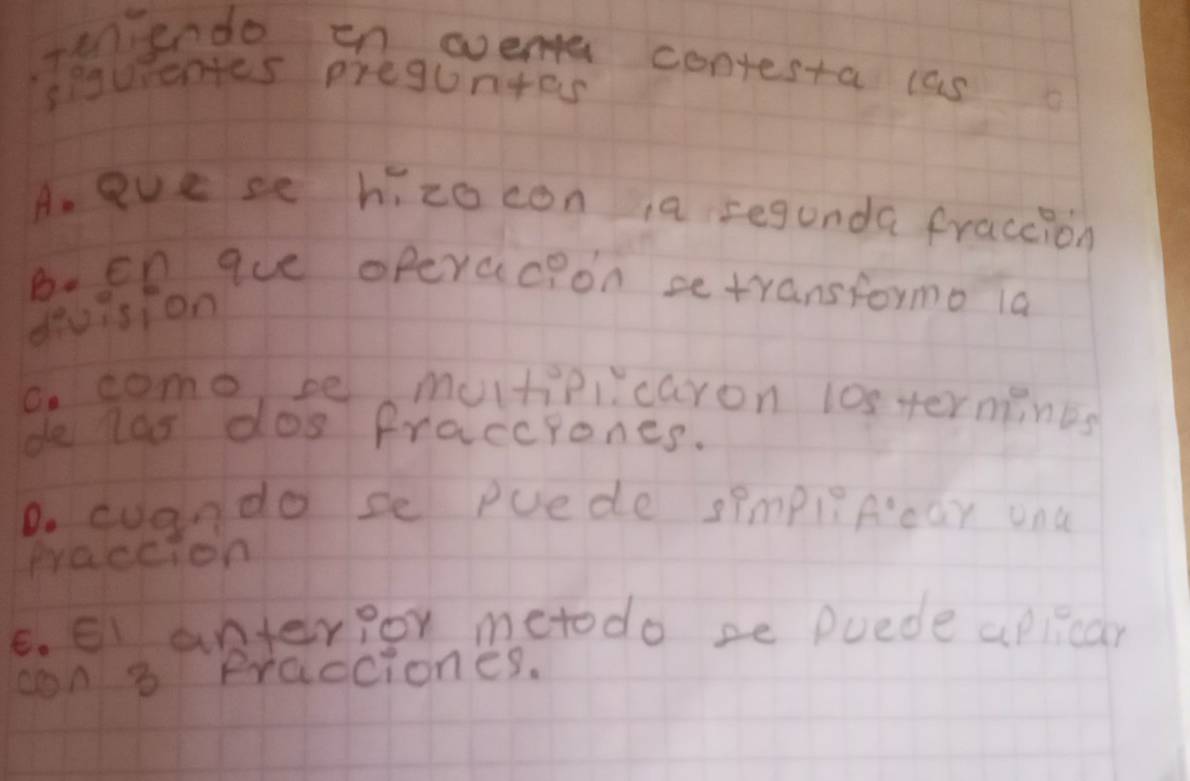 teniendo en cuenta contesta las
siguientes preguntas
A. Que se hizo con la segunda fracción
B. En que operación se transformo la
división
C. como se multiplicaron los terminos
de las dos fracciones.
D. cuando se puede simplificar una
fraccion
E. El anterior metodo se puede aplicar
con 3 fracciones.